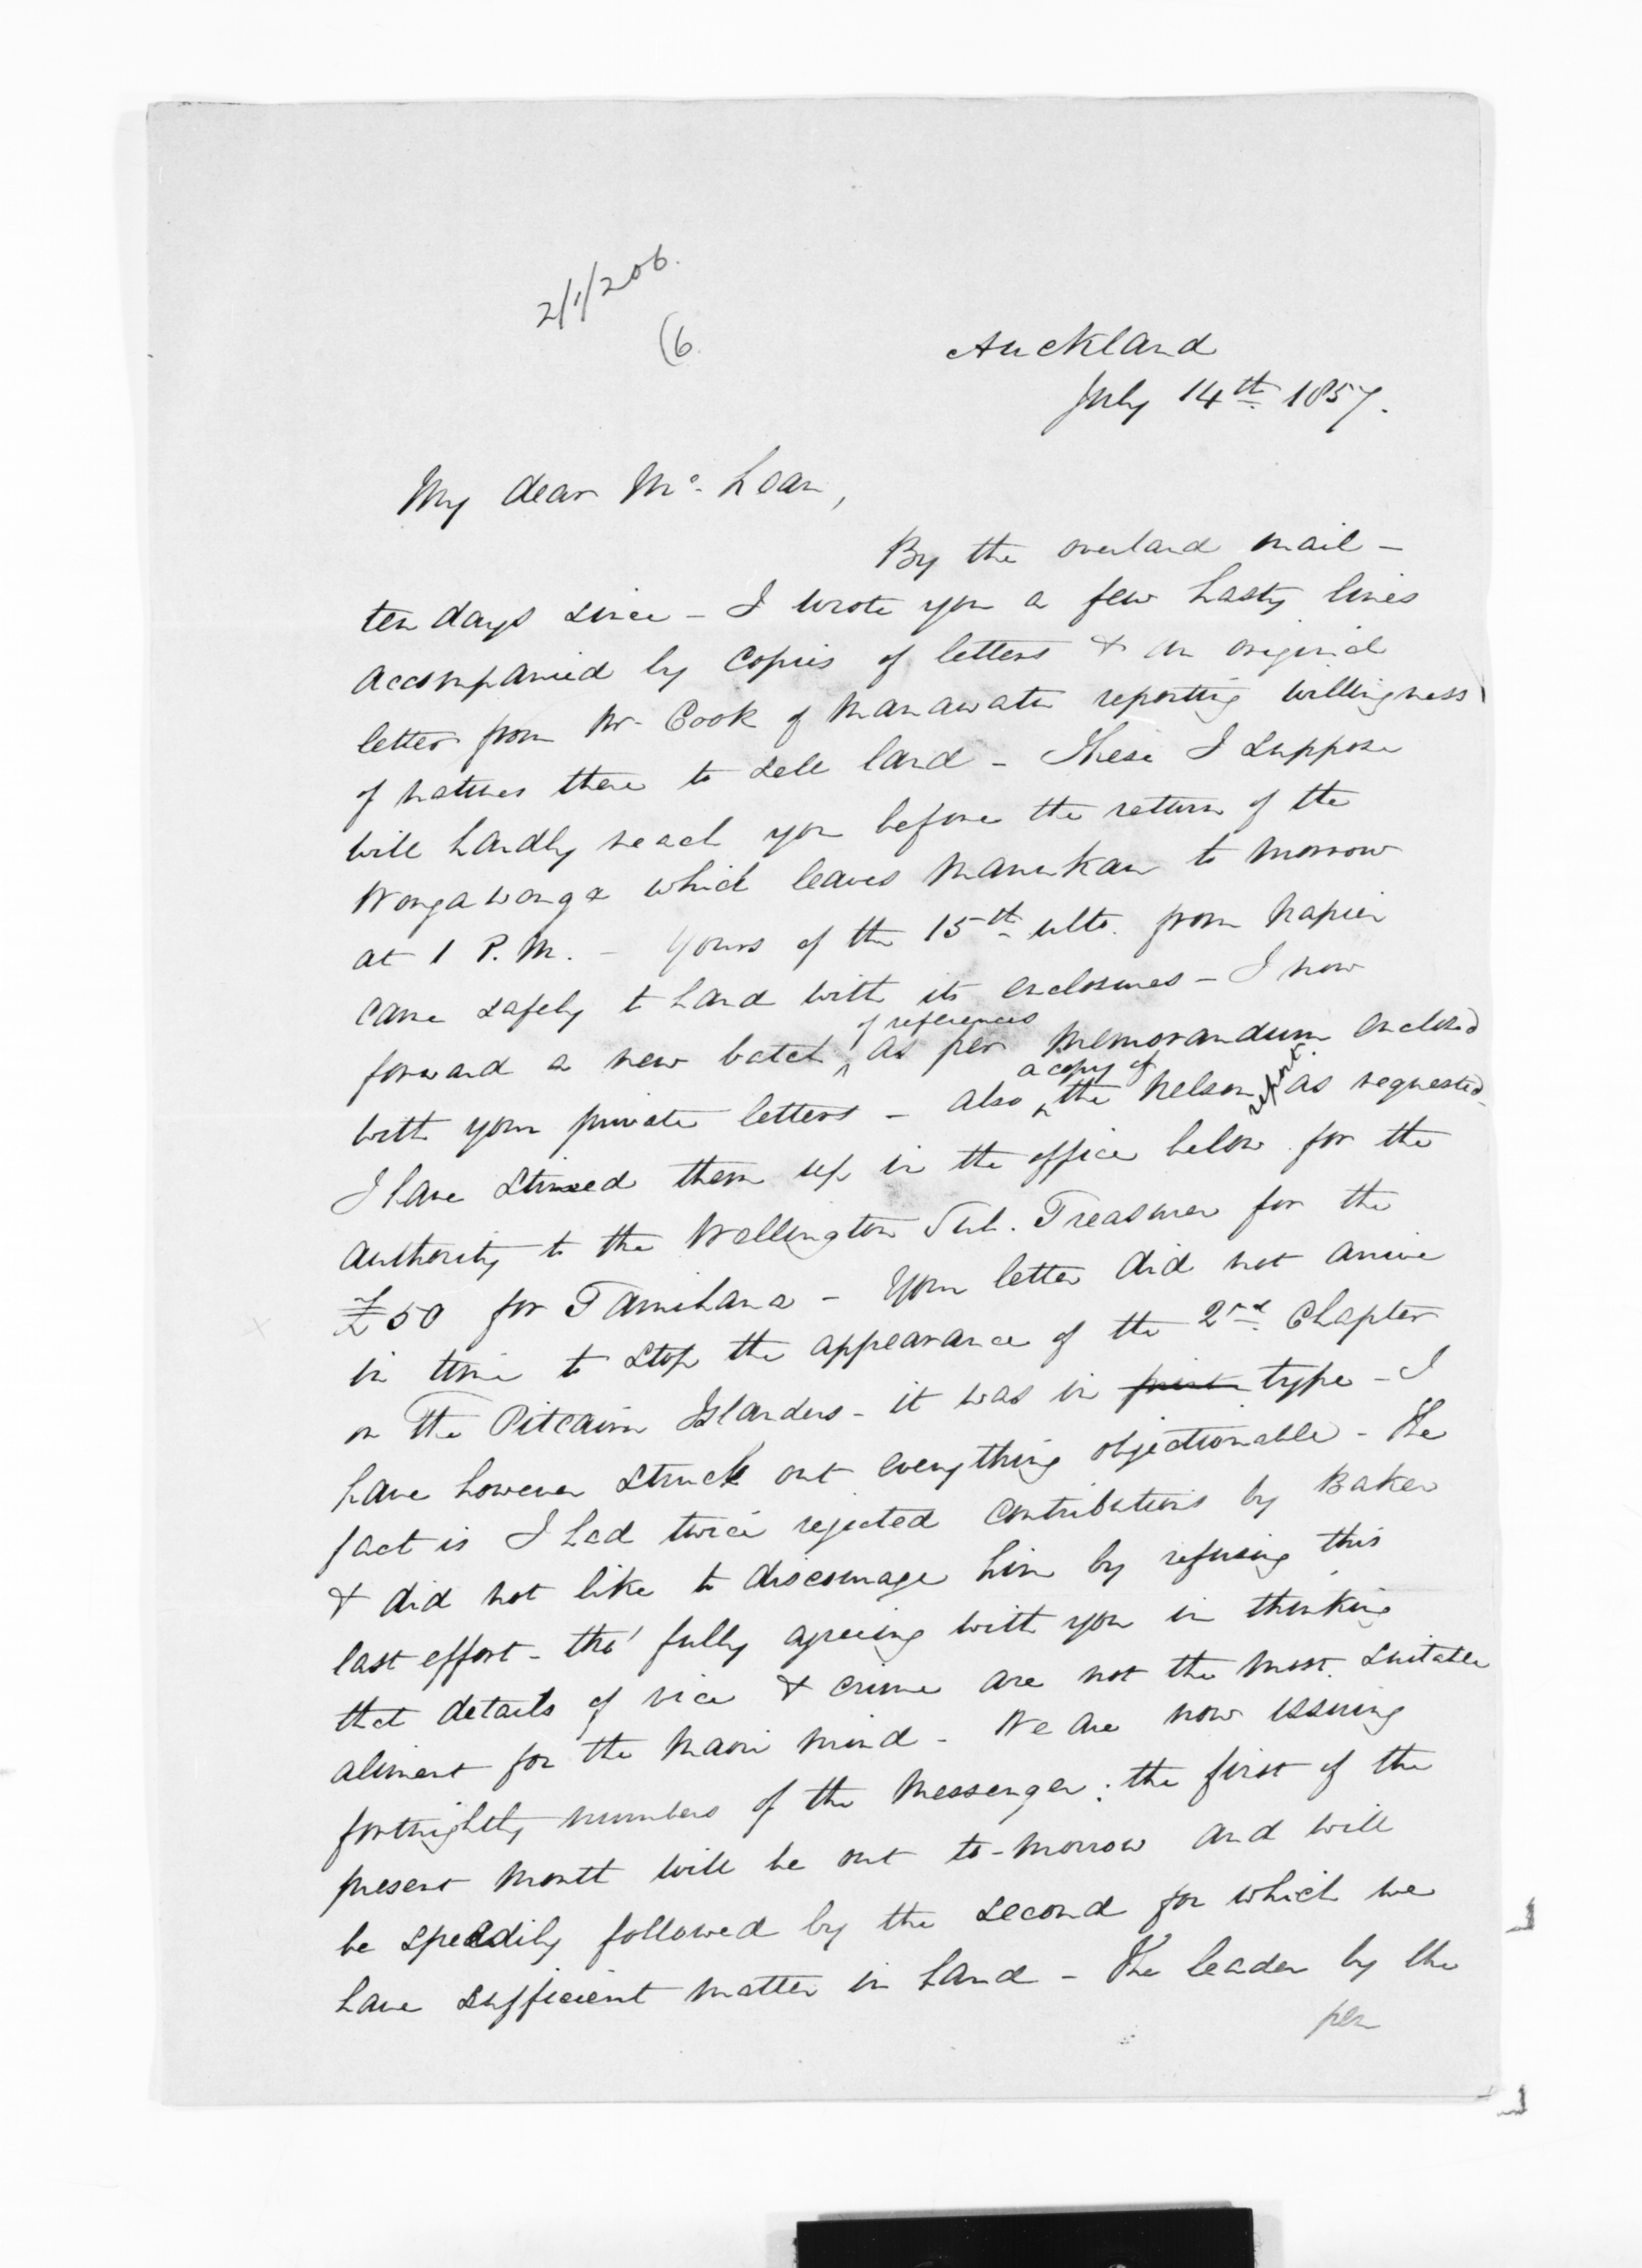 2/1/206.
(6.
Auckland
July 14th 1857.
My dear Mc. Lean,
By the overland mail -
ten days since - I wrote you a few hasty lines
accompanied by copies of letters & an original
letter from Mr. Cook of Manawatu reporting willingness
of natives there to sell land - These I suppose
will hardly reach you before the return of the
Wonga wonga which leaves Manukau to morrow
at 1 P.M. - Yours of the 15th ulto. from Napier
came safely to hand with its enclosures - I now
forward a new batch of references as per memorandum enclosed
with your private letters - also a copy of the Nelson report as requested.
I have stirred them up in the office below for the
authority to the Wellington Sub. Treasurer for the
£50 for Tamihana - Your letter did not arrive
in time to stop the appearance of the 2nd Chapter
on The Pitcairn Islanders - it was in print type - I
have however struck out everything objectionable - The
fact is I had twice rejected contributions by Baker
& did not like to discourage him by refusing this
last effort - tho' fully agreeing with you in thinking
that details of vice & crime are not the most suitable
aliment for the Maori mind - We are now issuing
fortnightly numbers of the Messenger: the first of the
present month will be out to-morrow and will
be speedily followed by the second for which we
have sufficient matter in hand - The leader by the
pen